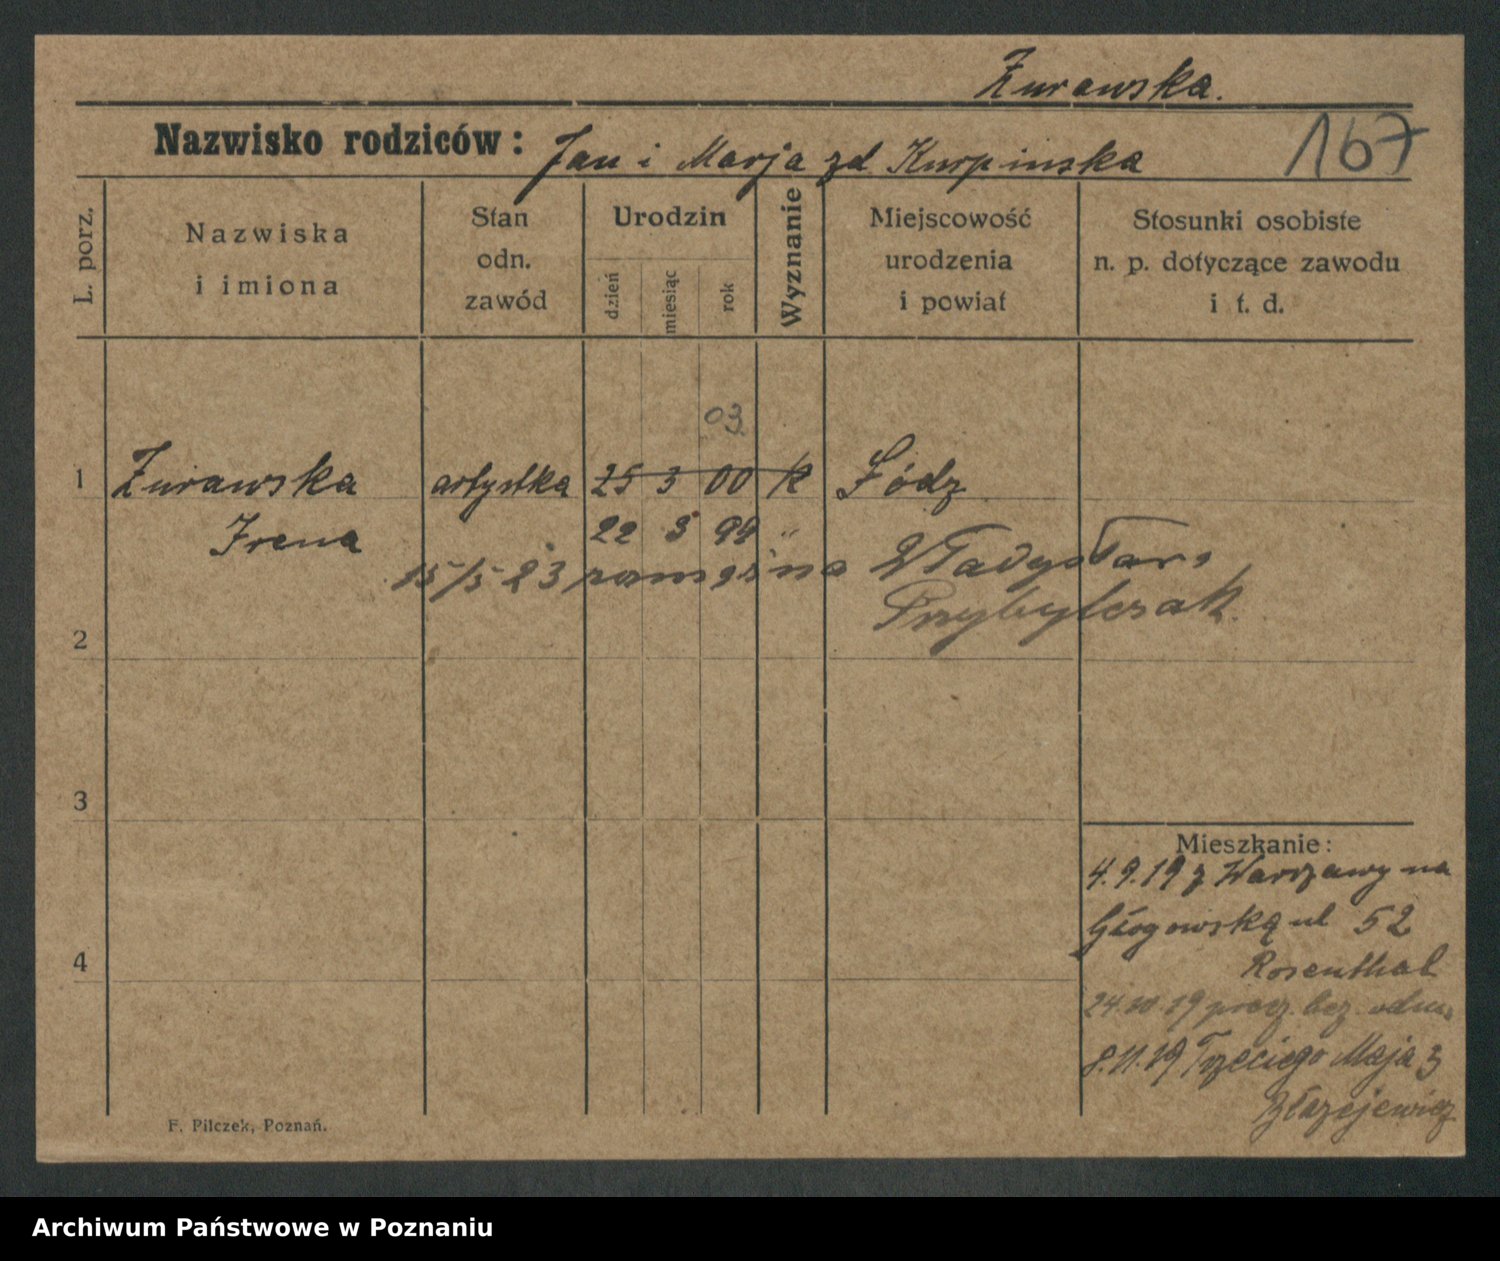 Żurawska.
Nazwisko rodziców: Jan i Marja zd. Kurpinska
167
L. porz.
Nazwiska
i imiona
Stan
odn.
zawód
Urodzin
dzień
miesiąc
rok
Wyznanie
Miejscowość
urodzenia
i powiat
Stosunki osobiste
n. p. dotyczące zawodu
i t. d.
03
1 Żurawska artystka 25 3 00 k Łódz
Irena 22 3 99 "
15/5 23 zamężna Władysław
Przybylczak.
2
3
4
Mieszkanie:
4.9.19 z Warszawy na
Głogowską ul 52
Rosenthal
24.10.19 precz. bez. odm.
8.11.19 Trzeciego Maja 3
Błazejewicz
F. Pilczek, Poznań.
Archiwum Państwowe w Poznaniu